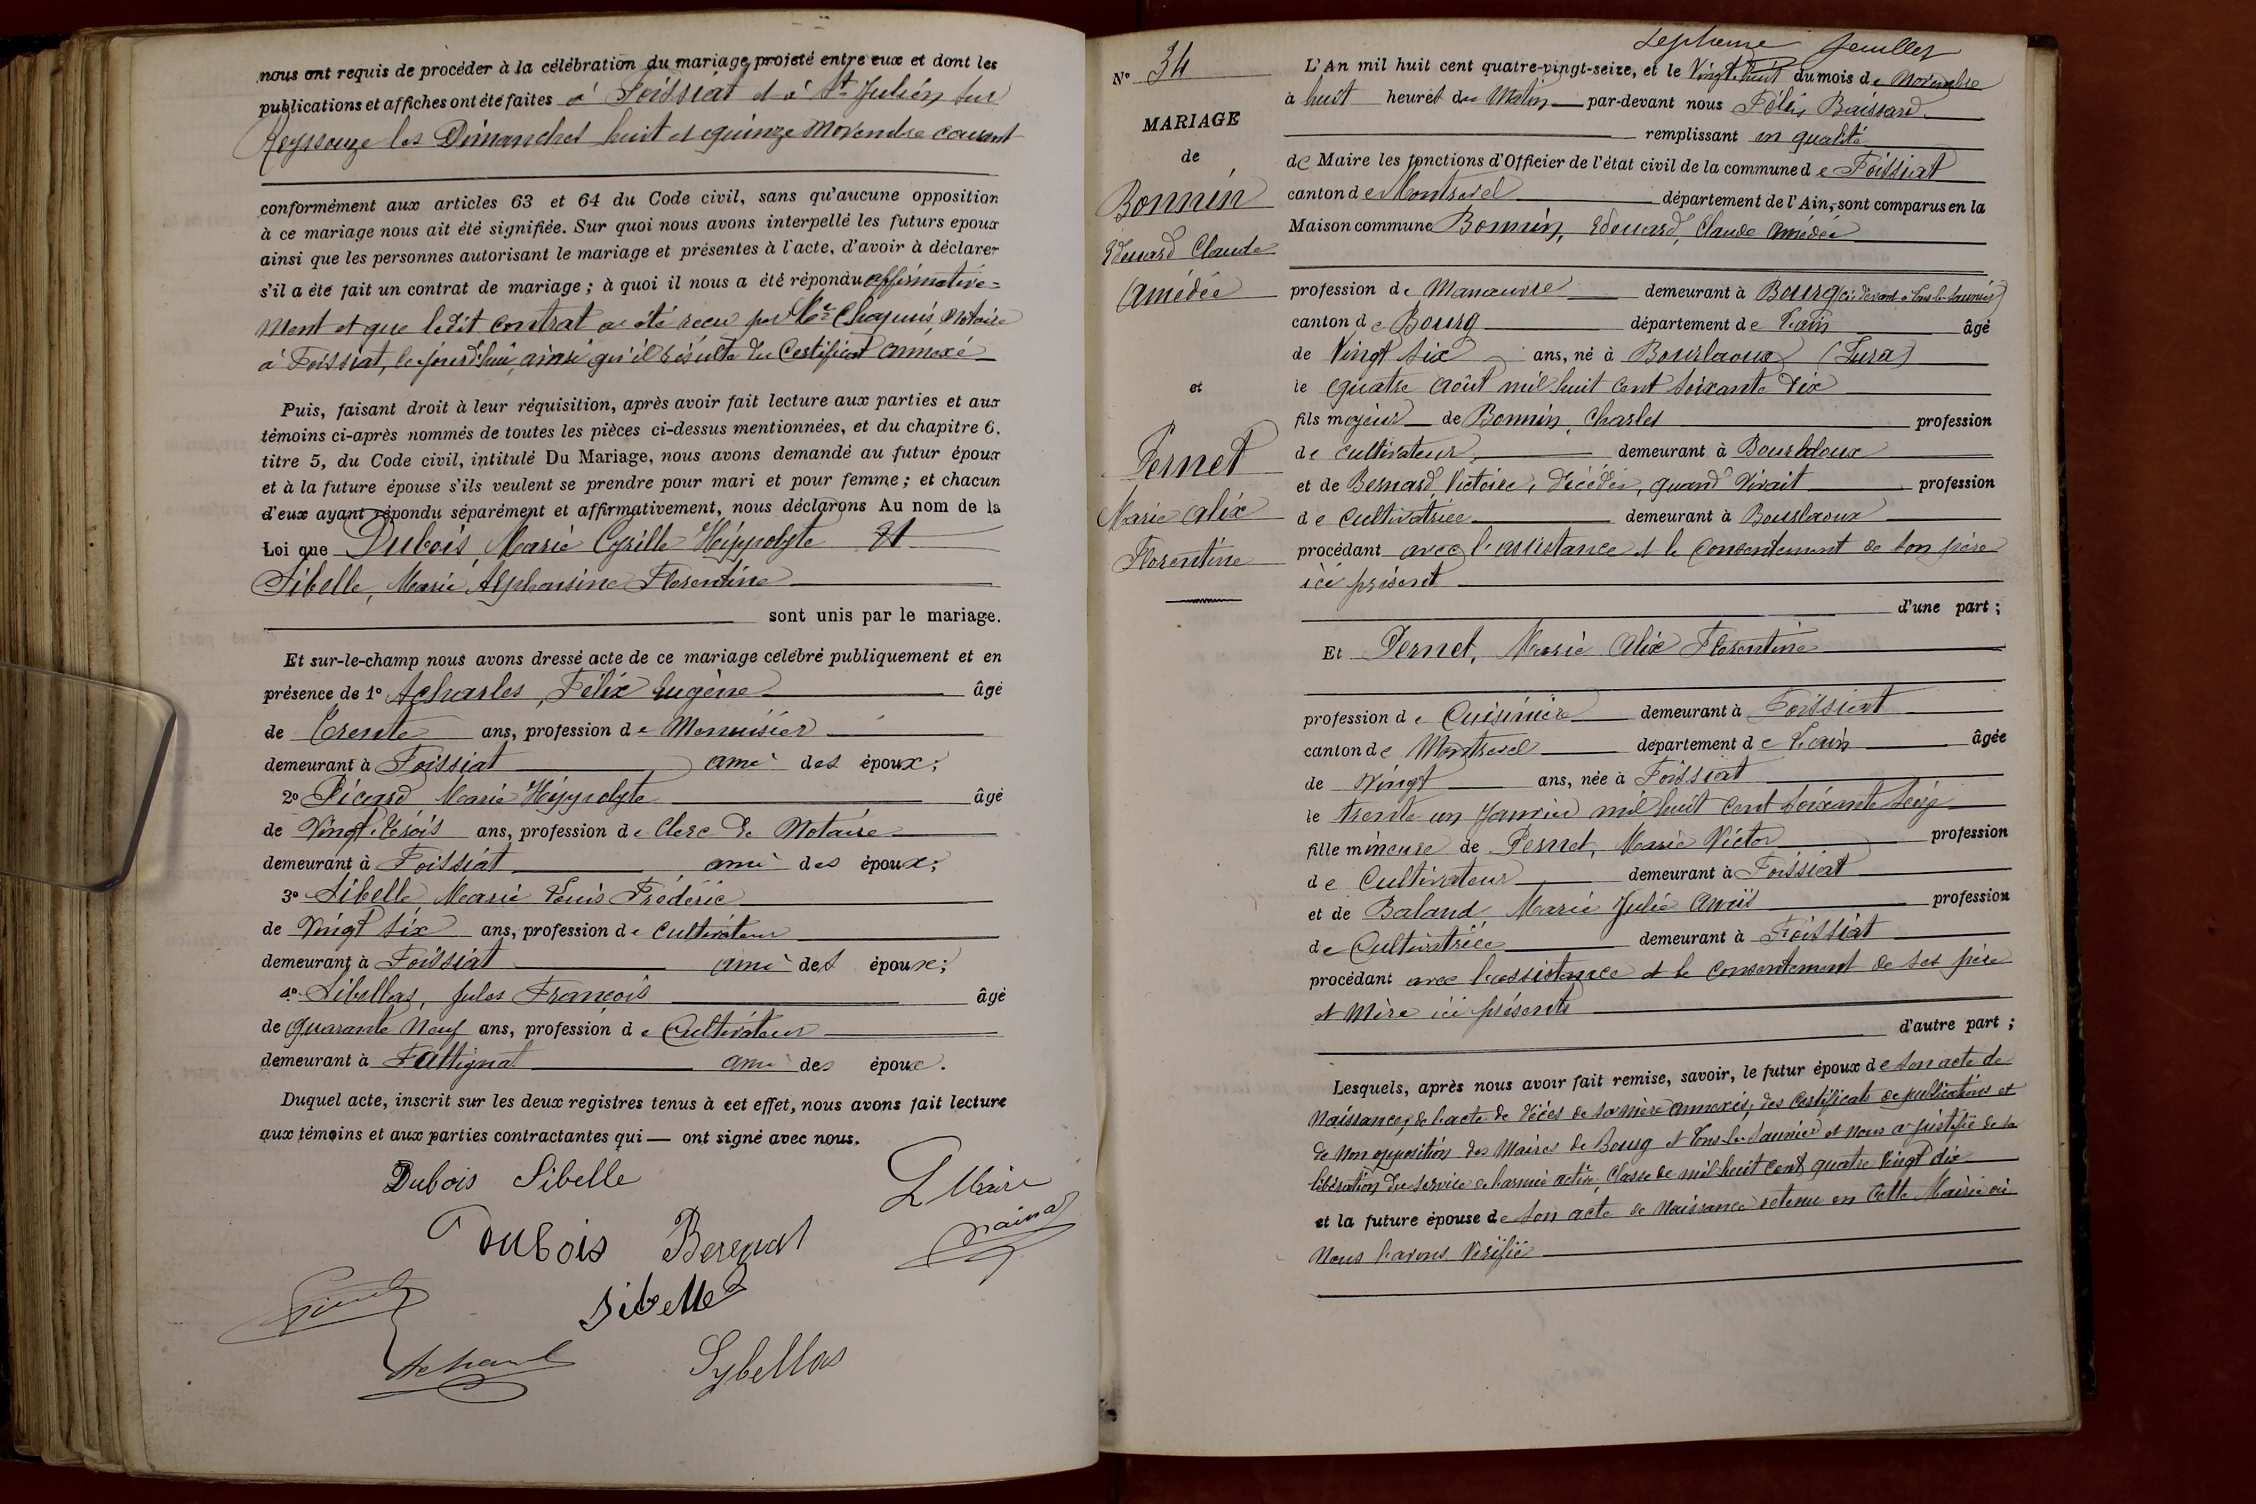 nous ont requis de procéder à la célébration du mariage projeté entre eux et dont les
publications et affiches ont été faites à Foissiat et à St Julien sur
Reyssouze les Dimanches huit et quinze Novembre courant
conformément aux articles 63 et 64 du Code civil, sans qu'aucune opposition
à ce mariage nous ait été signifiée. Sur quoi nous avons interpellé les futurs epoux
ainsi que les personnes autorisant le mariage et présentes à l'acte, d'avoir à déclarer
s'il a été fait un contrat de mariage ; à quoi il nous a été répondu affirmative=
ment et que ledit contrat a été reçu par Me Chapuis, Notaire
à Foissiat, le jourd'hui, ainsi qu'il résulte du Certificat annexé
Puis, faisant droit à leur réquisition, après avoir fait lecture aux parties et aux
témoins ci-après nommés de toutes les pièces ci-dessus mentionnées, et du chapitre 6.
titre 5, du Code civil, intitulé Du Mariage, nous avons demandé au futur époux
et à la future épouse s'ils veulent se prendre pour mari et pour femme ; et chacun
d'eux ayant répondu séparément et affirmativement, nous déclarons Au nom de la
Loi que Dubois, Marie Cyrille Hippolyte Et
Sibelle, Marie Alphonsine Florentine
sont unis par le mariage.
Et sur-le-champ nous avons dressé acte de ce mariage célébré publiquement et en
présence de 1° Acharles, Félix Eugène âgé
de Trente ans, profession de Menuisier
demeurant à Foissiat ami des époux ;
2° Picard Marie Hippolyte âgé
de Vingt trois ans, profession de Clerc de Notaire
demeurant à Foissiat ami des époux ;
3° Sibelle Marie Louis Frédéric
de Vingt six ans, profession de Cultivateur
demeurant à Foissiat ami des époux ;
4° Sibellas, Jules François âgé
de quarante Neuf ans, profession de Cultivateur
demeurant à Attignat ami des époux.
Duquel acte, inscrit sur les deux registres tenus à cet effet, nous avons fait lecture
aux témoins et aux parties contractantes qui — ont signé avec nous.
Dubois Sibelle
L Maire
Dubois
Sibelle
Sybellas
N° 34
MARIAGE
de
Bonnin
Edouard Claude
Amédée
et
Pernet
Marie Alix
Florentine
septième feuillet
L'An mil huit cent quatre-vingt-seize, et le Vingt huit du mois de Novembre
à huit heures du Matin par-devant nous Félix Buissard
remplissant en qualité
de Maire les fonctions d'Officier de l'état civil de la commune de Foissiat
canton de Montrevel département de l'Ain, sont comparus en la
Maison commune Bonnin, Edouard, Claude Amédée
profession de Manœuvre demeurant à Bourg (ci-devant à Lons-le-Saunier)
canton de Bourg département de l'ain âgé
de Vingt six ans, né à (Jura)
le quatre août mil huit cent soixante dix
fils majeur de Bonnin, Charles profession
de cultivateur demeurant à
et de Bernard Victoire, décédée, quand vivait profession
de Cultivatrice demeurant à
procédant avec l'assistance et le Consentement de son père
ici présent
d'une part ;
Et Pernet, Marie Alix Florentine
profession de Cuisinière demeurant à Foissiat
canton de Montrevel département de l'ain âgée
de Vingt ans, née à Foissiat
le trente un Janvier mil huit Cent soixante seize
fille mineure de Pernet, Marie Victor profession
de Cultivateur demeurant à Foissiat
et de Baland Marie Julie Anaïs profession
de Cultivatrice demeurant à Foissiat
procédant avec l'assistance et le Consentement de ses père
et Mère ici présents
d'autre part ;
Lesquels, après nous avoir fait remise, savoir, le futur époux de son acte de
Naissance, de l'acte de décès de sa mère annexés, des Certificats de publications et
de Non opposition des Maires de Bourg et Lons-le-Saunier et nous a justifié de sa
libération du service de l'armée active, Classe de mil huit cent quatre vingt dix
et la future épouse de son acte de Naissance retenu en cette Mairie où
Nous l'avons Vérifié